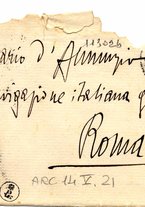 113026
ario d'Annunzio
igazione italiana
Roma
ARC 14 V. 21